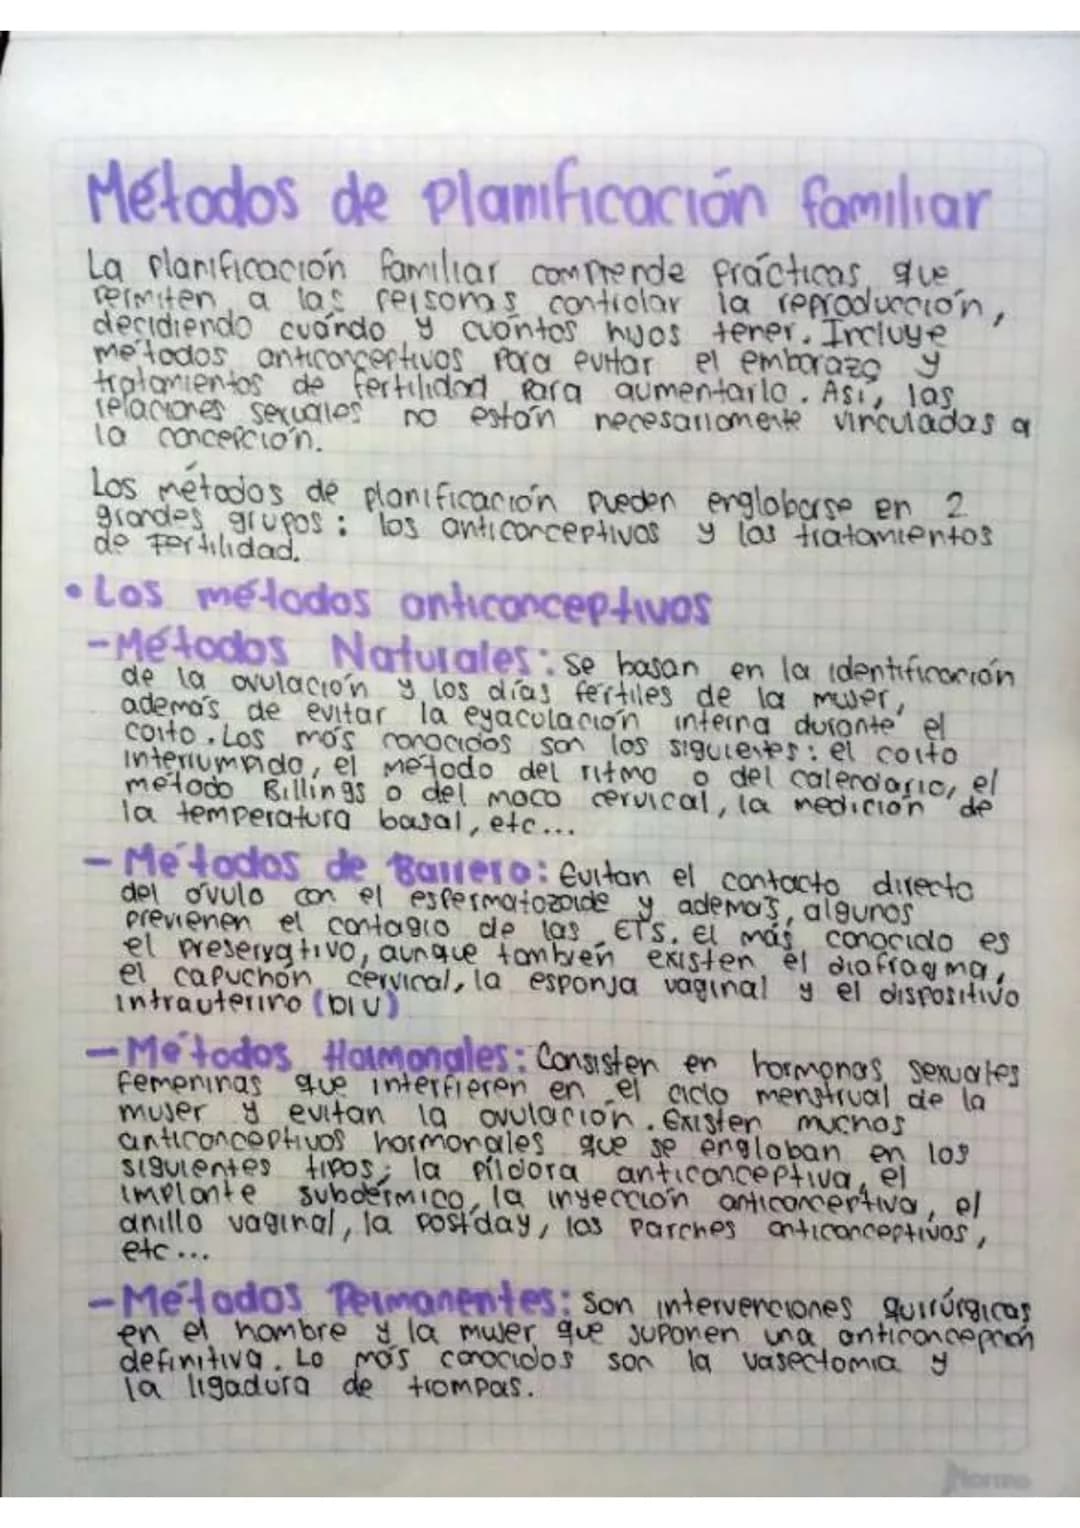 Métodos de planificación familiar
La planificación familiar comprende prácticas que
permiten a las personas controlar la reproducción,
decidiendo cuándo y cuántos hijos tener. Incluye
métodos anticonceptivos para evitar el embarazo y
tratamientos de fertilidad para aumentarlo. Así, las
relaciones sexuales no están necesariamente vinculadas a
la concepción.
Los métodos de planificación pueden englobarse en 2
grandes grupos: los anticonceptivos y los tratamientos
de Fertilidad.
• Los métodos anticonceptivos
- Métodos Naturales: Se basan en la identificación
de la ovulación y los días fértiles de la mujer,
además de evitar la eyaculación interna durante el
coito. Los más conocidos son los siguientes: el coito
interrumpido, el método del ritmo o del calendario, el
método Billings o del moco cervical, la medición de
la temperatura basal, etc...
- Métodos de Barrera: Evitan el contacto directo
del óvulo con el espermatozoide y además, algunos
previenen el contagio de las ETs. El más conocido es
el preservativo, aunque también existen el diafragma,
el capuchón cervical, la esponja vaginal y el dispositivo
intrauterino (DIU)
- Métodos Hormonales: Consisten en hormonas sexuales
femeninas que interfieren en el ciclo menstrual de la
mujer y evitan la ovulación. Existen muchos
anticonceptivos hormonales que se engloban en los
siguientes tipos; la píldora anticonceptiva, el
implante subdérmico, la inyección anticonceptiva, el
anillo vaginal, la postday, los parches anticonceptivos,
etc...
- Métodos Permanentes: Son intervenciones quirúrgicas
en el hombre y la mujer que suponen una anticoncepción
definitiva. Lo más conocidos son la vasectomia y
la ligadura de trompas.
Norma